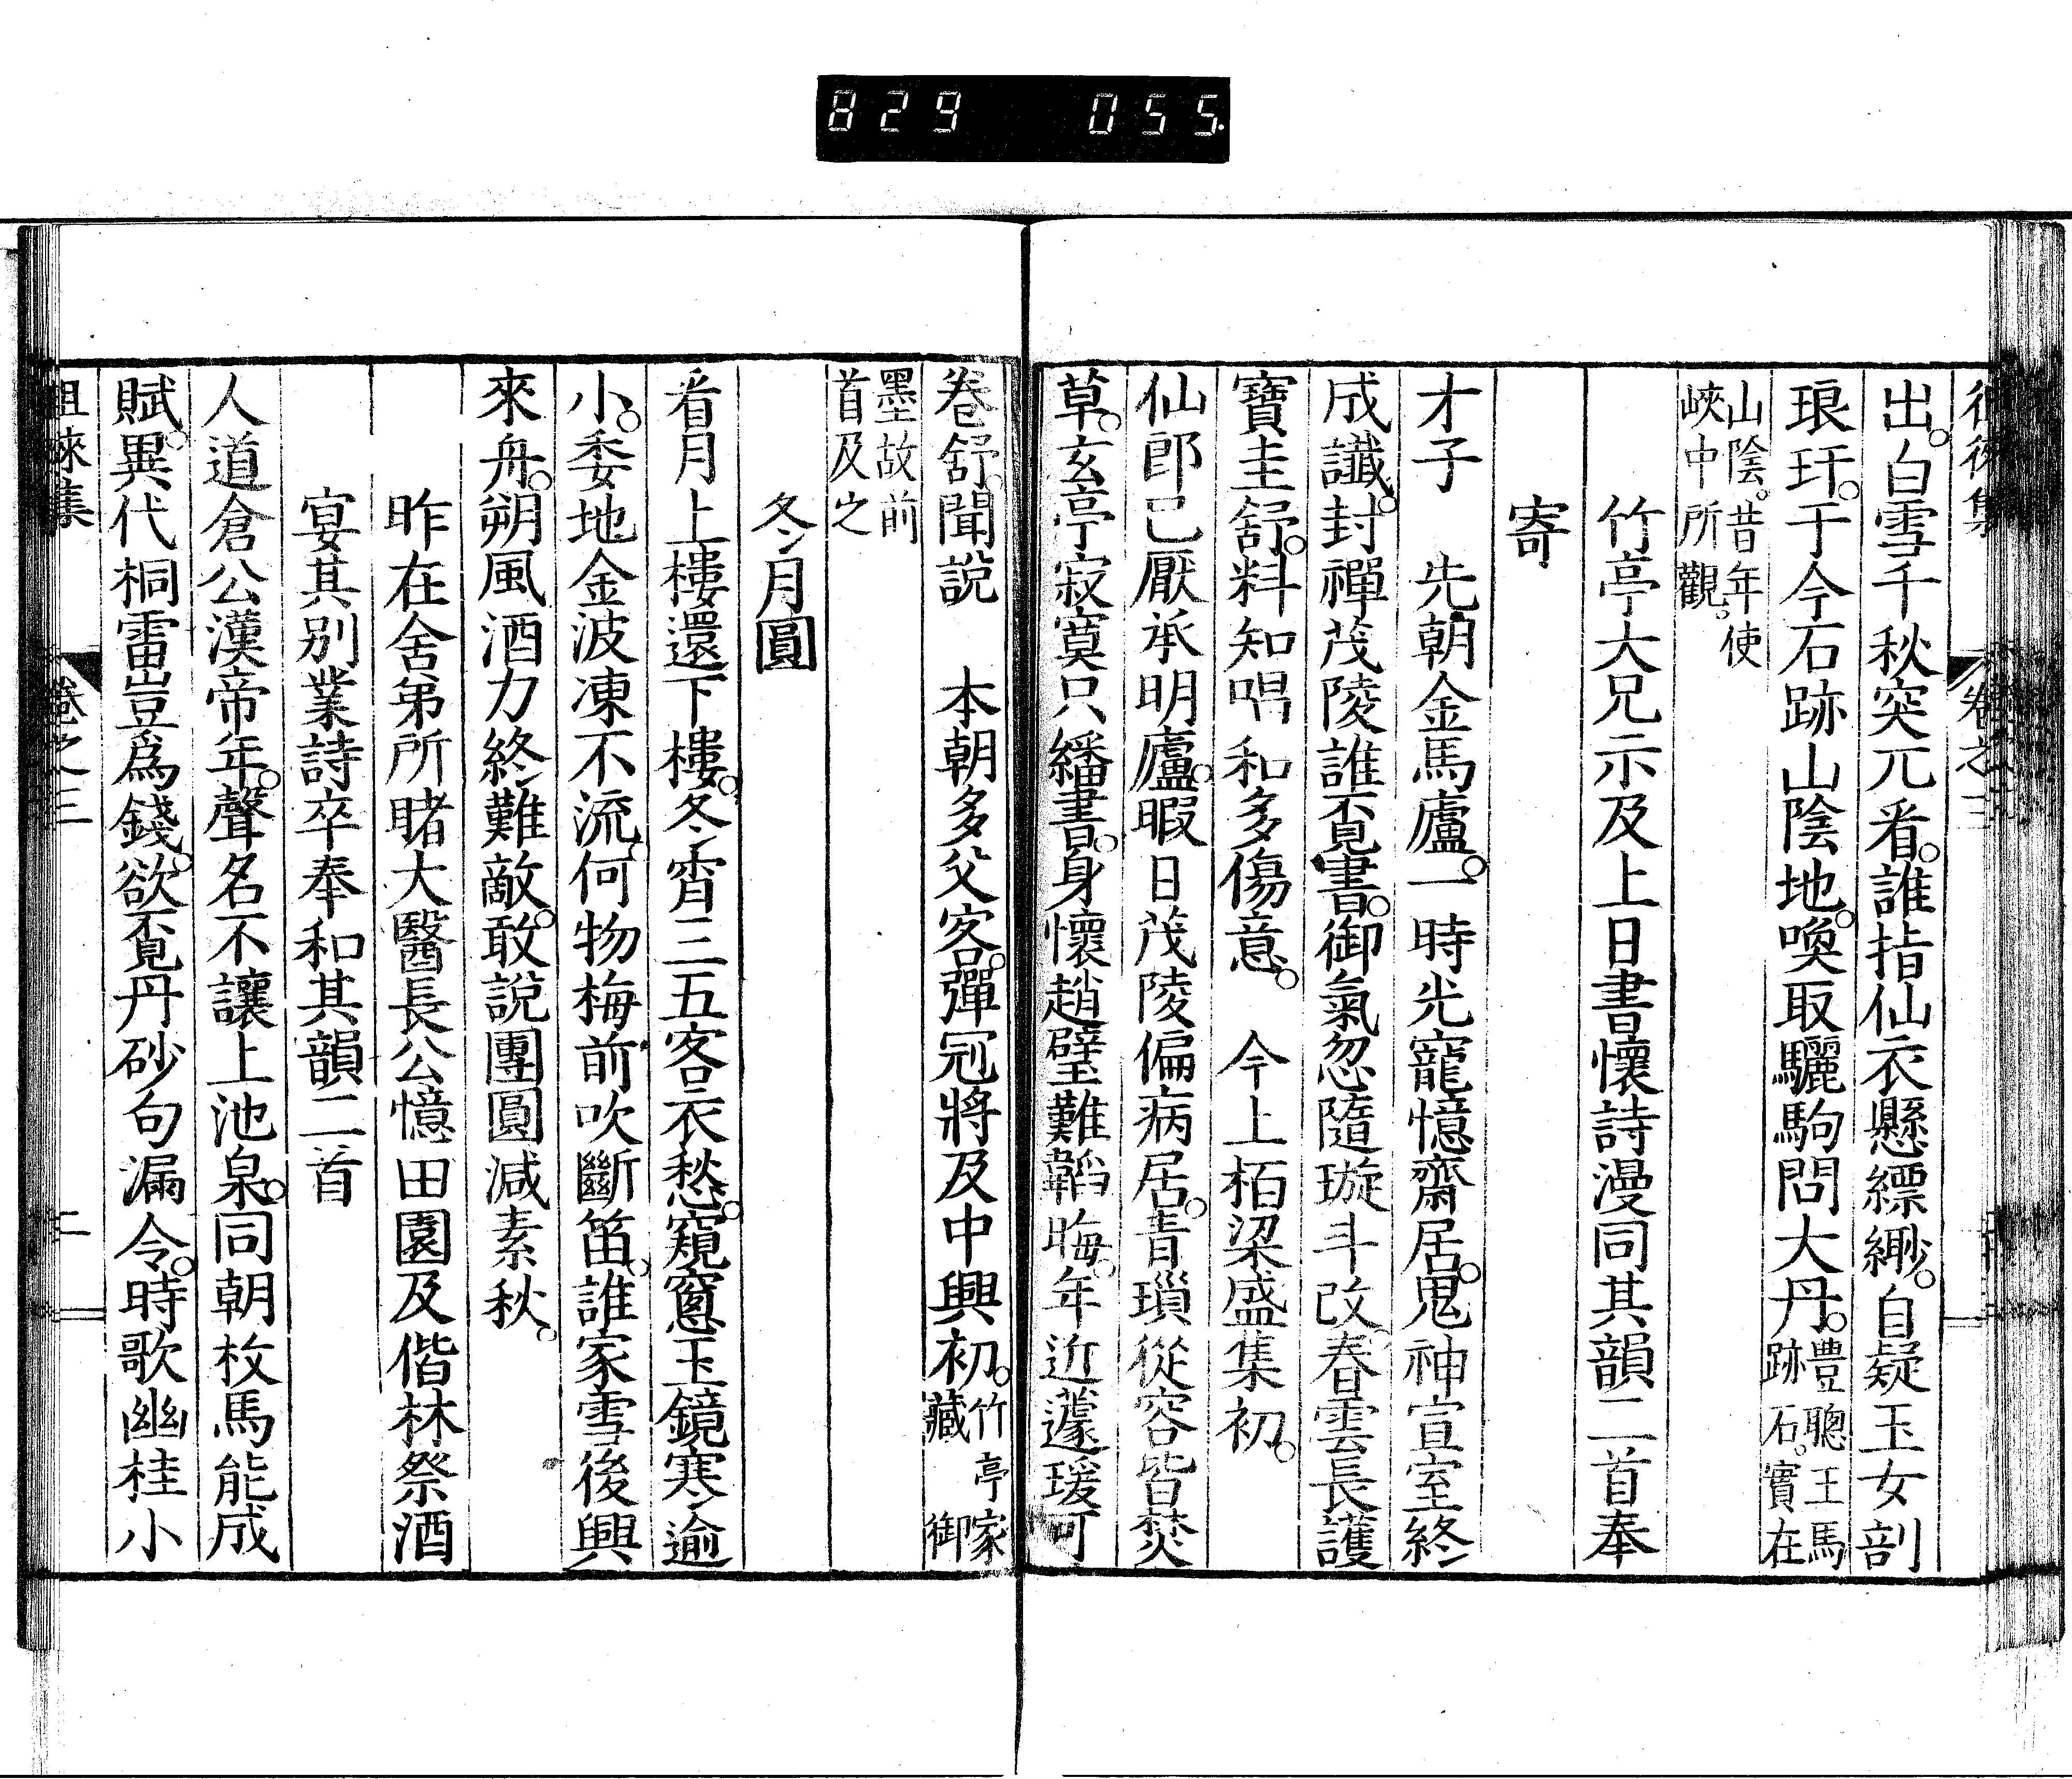 829 055.
徂徠集 卷之三
出。白雪千秋突兀看。誰指仙衣懸縹緲。自疑玉女剖
琅玕。于今石跡山陰地。喚取驪駒問大丹。豊聰王馬跡石。實在
山陰。昔年使峽中所觀。
竹亭大兄示及上日書懷詩漫同其韻二首奉
寄
才子 先朝金馬廬。一時光寵憶齋居。鬼神宣室終
成讖。封禪茂陵誰覔書。御氣忽隨璇斗改。春雲長護
寶圭舒。料知唱和多傷意。 今上栢梁盛集初。
仙郎已厭承明廬。暇日茂陵偏病居。青瑣從容皆焚
草。玄亭寂寞只繙書。身懷趙璧難韜晦。年近蘧瑗可
卷舒。聞說 本朝多父客。彈冠將及中興初。竹亭家藏 御
墨故前首及之
冬月圓
看月上樓還下樓。冬宵三五客衣愁。窺窻玉鏡寒逾
小。委地金波凍不流。何物梅前吹斷笛。誰家雪後興
來舟。朔風酒力終難敵。敢說團圓減素秋。
昨在舍弟所睹大醫長公憶田園及偕林祭酒
宴其別業詩卒奉和其韻二首
人道倉公漢帝年。聲名不讓上池泉。同朝枚馬能成
賦。異代桐雷豈爲錢。欲覔丹砂句漏令。時歌幽桂小
徂徠集 卷之三 二